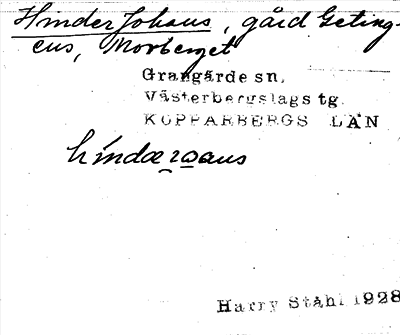 Hinder Johans, gård Geting-
ens, Morberget
Grangärde sn.
Västerbergslags tg.
KOPPARBERGS LÄN
híndæ ɹωaus
Harry Ståhl 1928